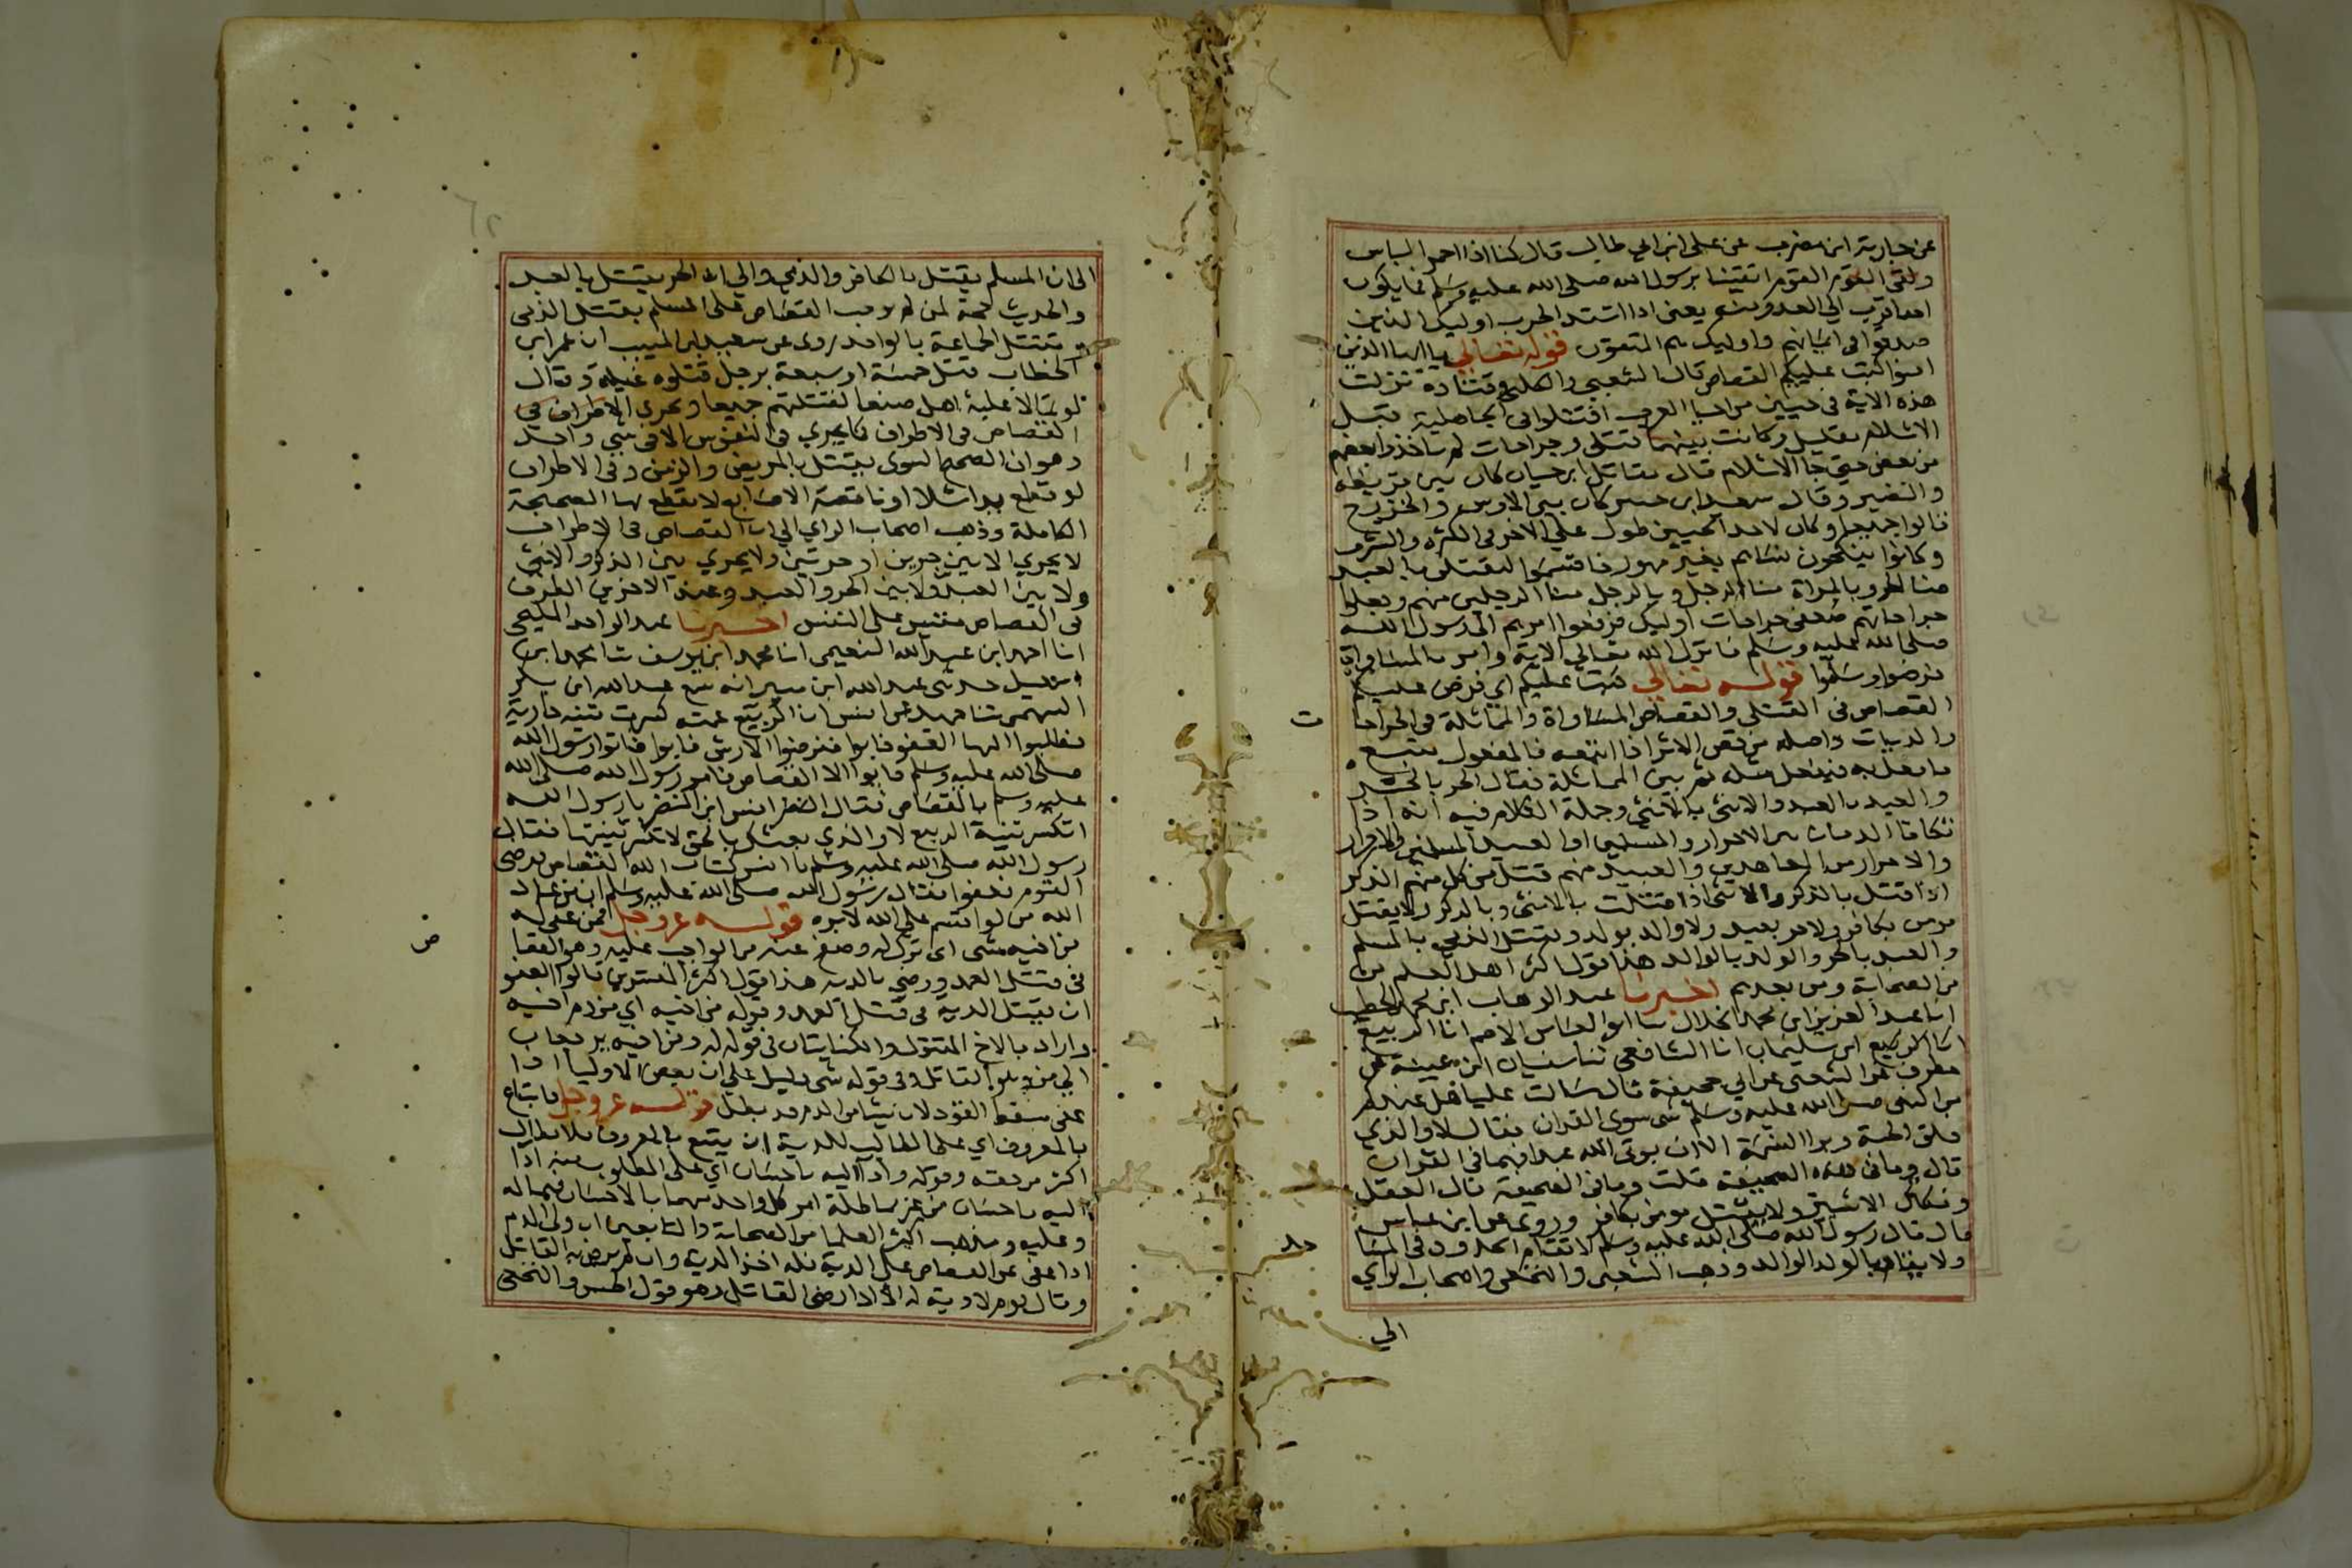 عن حارثة ابن مضرب عن علي ابن ابي طالب قال كنا اذا احمر الباس
ولقى القوم القوم اتقينا برسول الله صلى الله عليه وسلم فما يكون
احد اقرب الي العدو منه يعني اذا اشتد الحرب اوليك الذين
صدقوا في ايمانهم واوليك هم المتقون قوله تعالي يا ايها الذين
امنوا كتب عليكم القصاص قال الشعبي والكلبي وقتادة نزلت
هذه الاية في حيين من احيا العرب اقتتلوا في الجاهلية قبل
الاسلام بقليل وكانت بينهما قتلى وجراحات لم ياخذها بعضهم
من بعض حتي جا الاسلام قال مقاتل ابن حيان كان بين قريظة
والنضير وقال سعيد ابن جبير كان بين الاوس والخزرج
قالوا جميعا وكان لاحد الحيين طول علي الاخر في الكثرة والشرف
وكانوا ينكحون نساهم بغير مهور فاقسموا لنقتلن بالعبد
منا الحر وبالمراة منا الرجل وبالرجل منا الرجلين منهم وجعلوا
جراحاتهم ضعفي جراحات اوليك فرفعوا امرهم الي رسول الله
صلى الله عليه وسلم فانزل الله تعالي الاية وامر بالمساواة
فرضوا وسلموا قوله تعالي كتب عليكم اي فرض عليكم
القصاص في القتلى والقصاص المساواة والمماثلة في الجراحا
ت
والديات واصله من قص الاثر اذا اتبعه فالمفعول يتبع
ما فعل به فيفعل مثله ثم بين المماثلة فقال الحر بالحر
والعبد بالعبد والانثى بالانثى وجملة الكلام فيه انه اذا
تكافا الدمان من الاحرار والمسلمين او العبيد المسلمين
والاحرار من المعاهدين والعبيد منهم قتل من كل منهم الذكر
اذا قتل بالذكر والانثى اذا قتلت بالانثى وبالذكر ولا يقتل
مومن بكافر ولا حر بعبد ولا والد بولد ويقتل الذمي بالمسلم
والعبد بالحر والولد بالوالد هذا قول اكثر اهل العلم من
من الصحابة ومن بعدهم اخبرنا عبد الوهاب ابن محمد الخطيب
انا عبد العزيز ابن محمد الخلال نا ابو العباس الاصم انا الربيع
انا الربيع ابن سليمان انا الشافعي ثنا سفيان ابن عيينة عن
مطرف عن الشعبي عن ابي جحيفة قال سالت عليا هل عندكم
من النبي صلى الله عليه وسلم شي سوى القران فقال لا والذي
فلق الحبة وبرا النسمة الا ان يوتى الله عبدا فهما في القران
قال وما في هذه الصحيفة قلت وما في الصحيفة قال العقل
وفكاك الاسير ولا يقتل مومن بكافر وروي عن ابن عباس
قال قال رسول الله صلى الله عليه وسلم لا تقام الحدود في المسا
جد
ولا يقاد بالولد الوالد وذهب الشعبي والنخعي واصحاب الراي
الي
الي ان المسلم يقتل بالكافر والذمي والي ان الحر يقتل بالعبد
والحديث حجة لمن لم يوجب القصاص على المسلم بقتل الذمي
وتقتل الجماعة بالواحد روى عن سعيد ابن المسيب ان عمر ابن
الخطاب قتل خمسة او سبعة برجل قتلوه غيلة وقال
لو تمالا عليه اهل صنعا لقتلتهم جميعا ويجري الاطراف في
القصاص في الاطراف كما يجري في النفوس الا في شي واحد
وهو ان الصحيح السوى يقتل بالمريض والزمن وفي الاطراف
لو قطع يدا شلا او ناقصة الاصابع لا يقطع بها الصحيحة
الكاملة وذهب اصحاب الراي الي ان القصاص في الاطراف
لا يجري الا بين حرين او حرتين ولا يجري بين الذكر والانثى
ولا بين العبد ولا بين الحر والعبد وعند الاخرين الطرف
في القصاص مقيس على النفس اخبرنا عبد الواحد المليحي
انا احمد ابن عبد الله النعيمي انا محمد ابن يوسف ثنا محمد ابن
اسمعيل حدثني عبد الله ابن منير انه سمع عبد الله ابن بكر
السهمي ثنا حميد عن انس ان الربيع عمته كسرت ثنية جارية
فطلبوا اليها العفو فابوا فعرضوا الارش فابوا فاتوا رسول الله
صلى الله عليه وسلم فابوا الا القصاص فامر رسول الله صلى الله
عليه وسلم بالقصاص فقال انس ابن النضر يا رسول الله
اتكسر ثنية الربيع لا والذي بعثك بالحق لا تكسر ثنيتها فقال
رسول الله صلى الله عليه وسلم يا انس كتاب الله القصاص فرضى
القوم فعفوا فقال رسول الله صلى الله عليه وسلم ان من عباد
الله من لو اقسم علي الله لابره قوله عز وجل فمن عفي له
من اخيه شي اي ترك له وصفح عنه من الواجب عليه وهو القصا
ص
في قتل العمد ورضي بالدية هذا قول اكثر المفسرين قالوا العفو
ان يقبل الدية في قتل العمد وقوله من اخيه اي من دم اخيه
واراد بالاخ المقتول والكنايتان في قوله له ومن اخيه يرجعان
الي من وهو القاتل وفي قوله شي دليل علي ان بعض الاوليا اذا
عفى سقط القود لان شيا من الدم قد بطل قوله عز وجل فاتباع
بالمعروف اي على الطالب للدية ان يتبع بالمعروف فلا يطالب
اكثر من حقه وقوله واداء اليه باحسان اي على المطلوب منه ادا
اليه باحسان من غير مماطلة امر كل واحد منهما بالاحسان فيما له
وعليه ومذهب اكثر العلما من الصحابة والتابعين ان ولي الدم
اذا عفى عن القصاص على الدية فله اخذ الدية وان لم يرض به القاتل
وقال قوم لا دية له الا اذا رضى القاتل وهو قول الحسن والنخعي